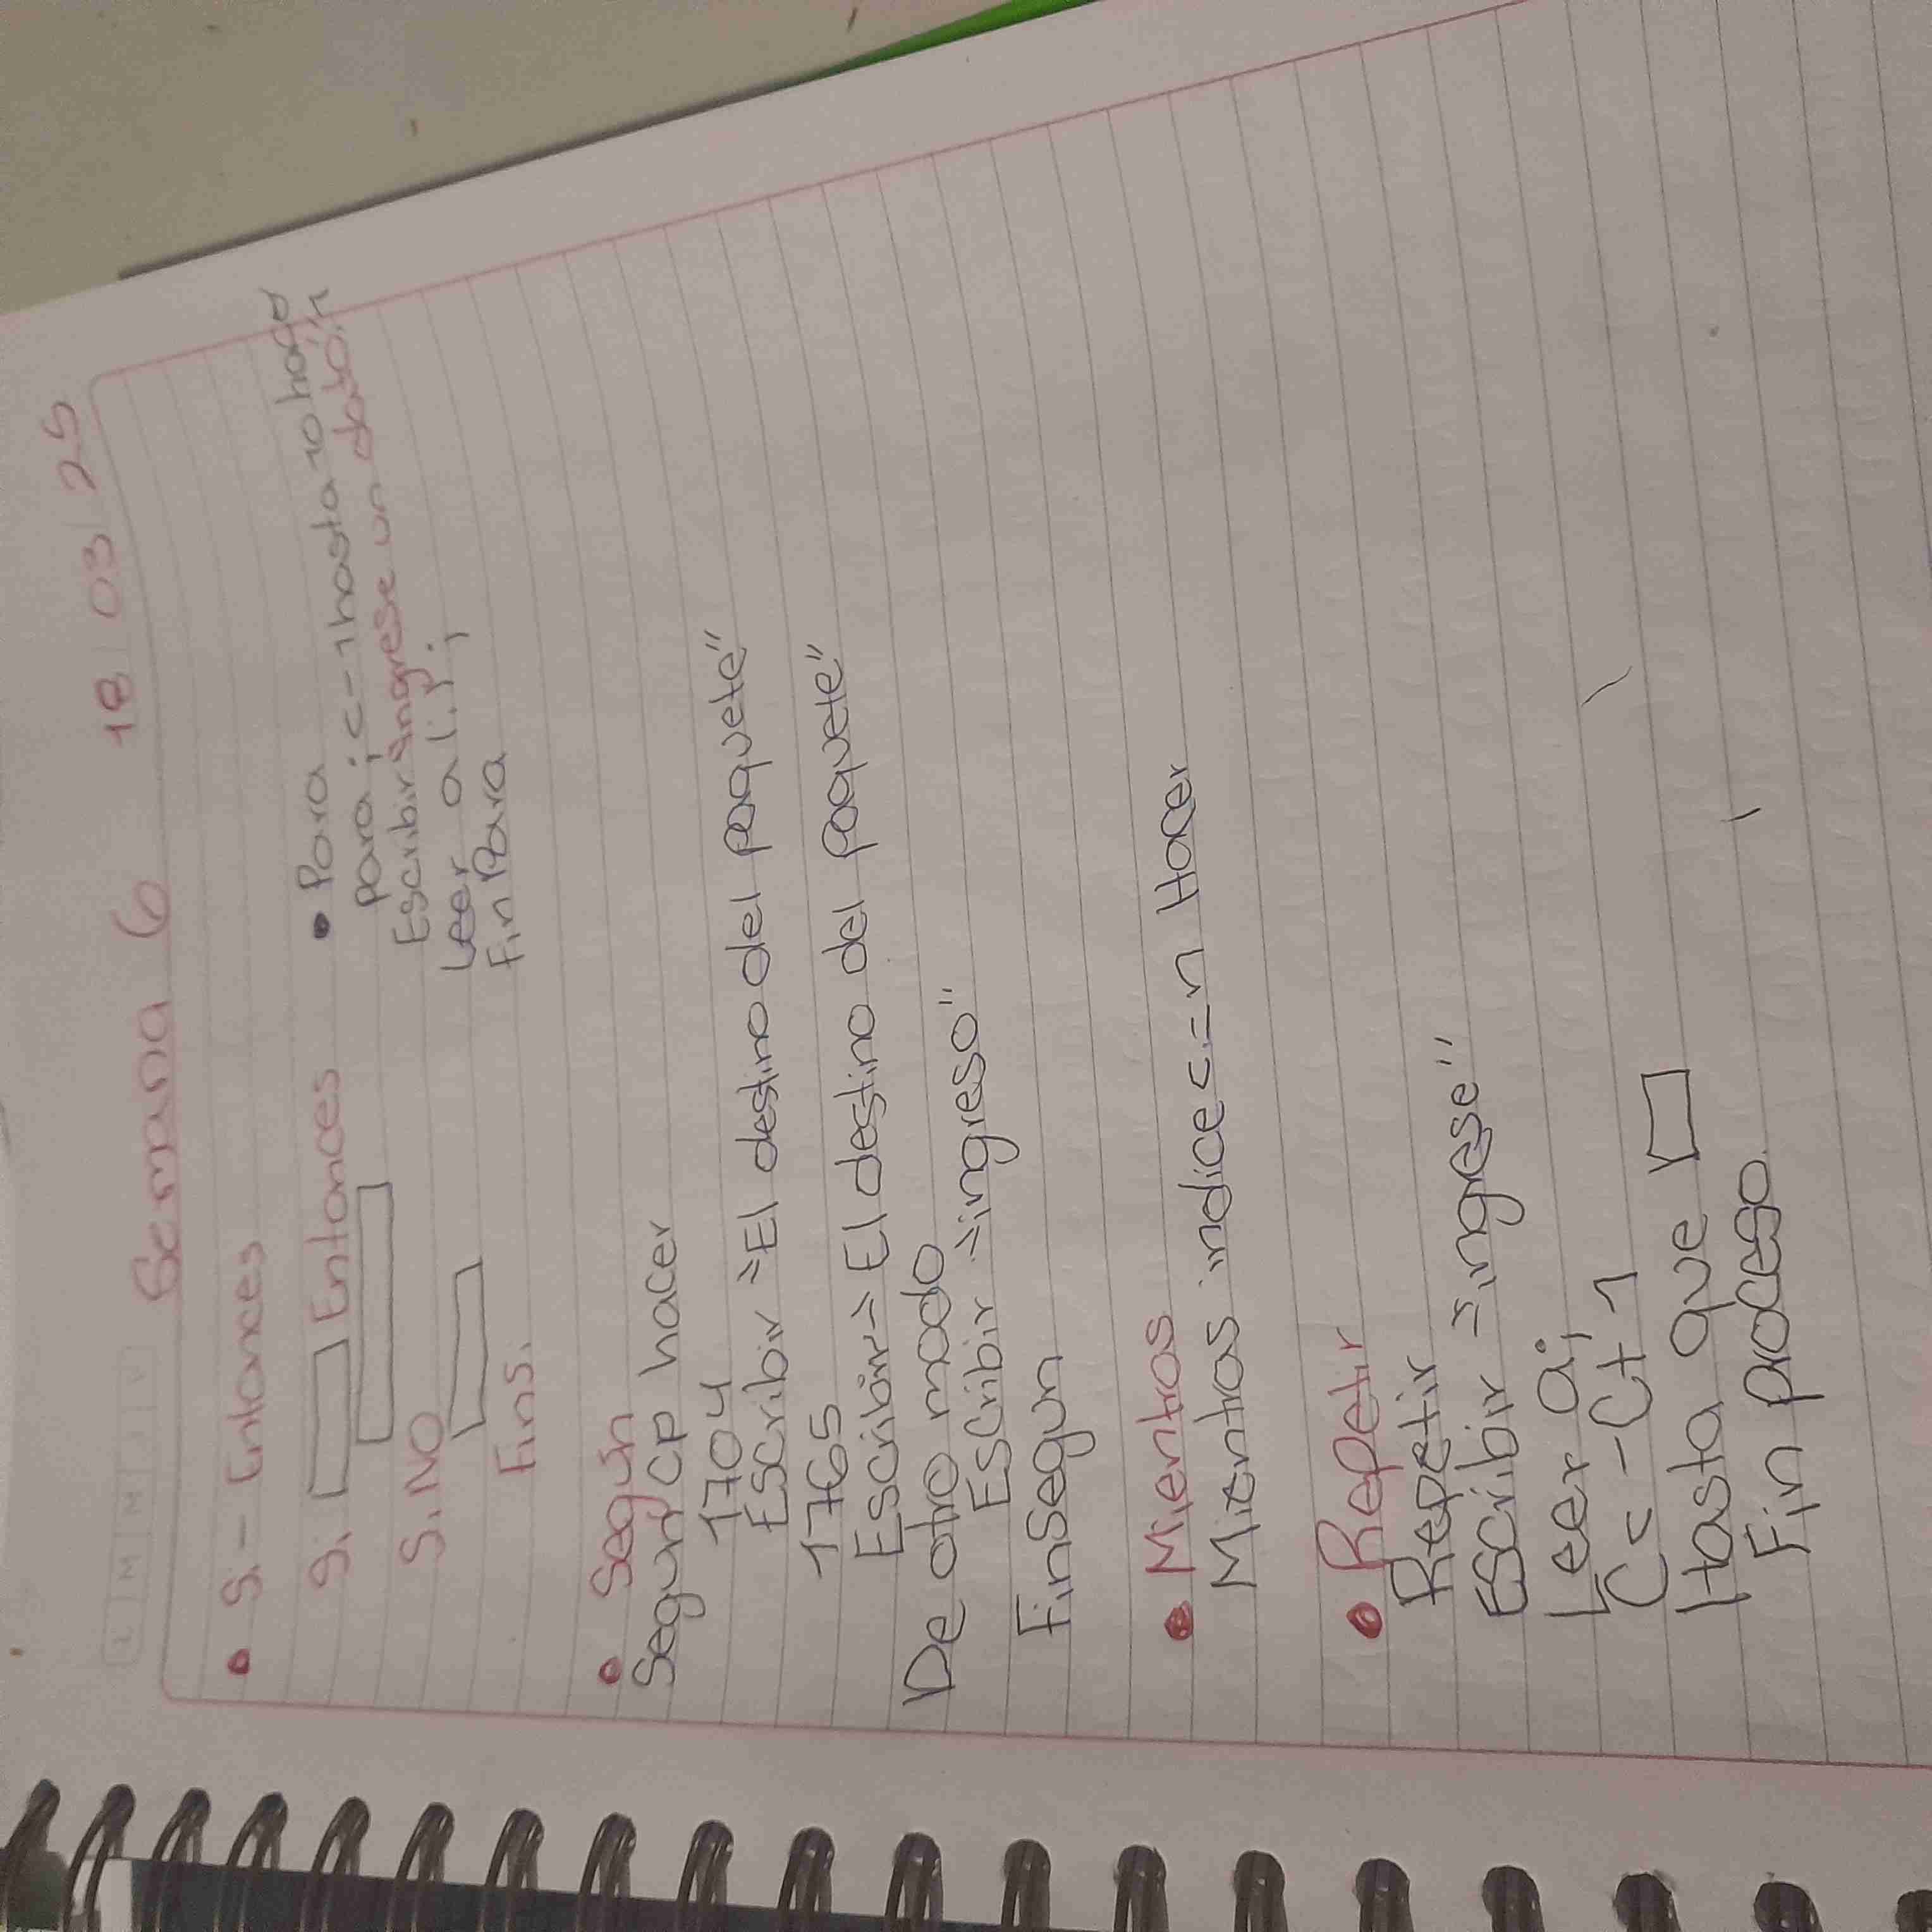 Semana 6 18/03/25
L M M J V
• Si - Entonces
Si Entonces
SiNO
Fins.
• Para
para i <-1 hasta 10 hacer
Escribir "ingrese un dato:",i
Leer a[i];
FinPara
• Segun
Segun cp hacer
1704
Escribir "El destino del paquete"
1765
Escribir "El destino del paquete"
De otro modo
Escribir "ingreso"
FinSegun
• Mientras
Mientras indice <=n Hacer
• Repetir
Repetir
Escribir "ingrese"
Leer a;
C<-C+1
Hasta que
Fin proceso.